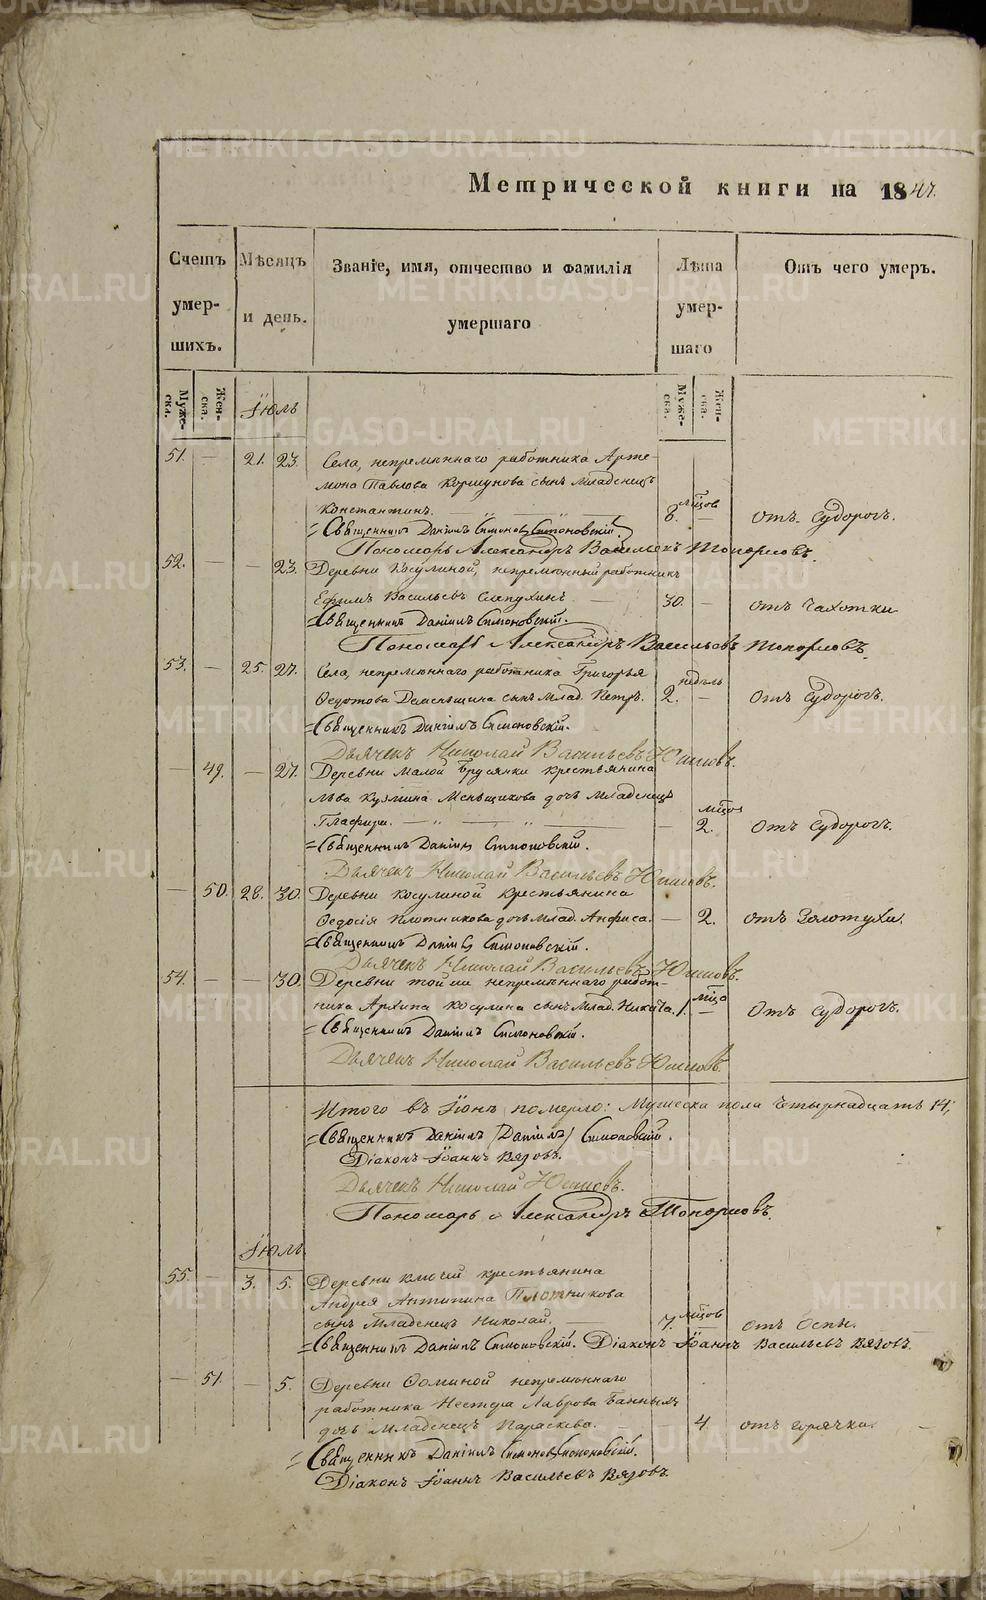 Метрической книги на 1847.
Счетъ умершихъ.
Мѣсяцъ и день.
Званіе, имя, отчество и фамилія умершаго
Лѣта умершаго
Отъ чего умеръ.
Мужеска. Женска.
Мужеска. Женска.
51. — 21. 23. Села, непремѣннаго работника Арте-
мона Павлова Коршунова сынъ младенецъ
Константинъ. 8. мѣсцов — отъ судорогъ.
Священникъ Даніилъ Симонов Симоновскій
Пономарь Александръ Васильевъ Топорковъ.
52. — — 23. Деревни Косулиной, непремѣнный работникъ
Ефимъ Васильевъ 30. — отъ чахотки
Священникъ Даніилъ Симоновскій.
Пономарь Александръ Васильевъ Топорковъ.
53. — 25. 27. Села, непремѣннаго работника Григорья
Федотова сынъ млад. Петръ. 2. недѣль — отъ судорогъ.
Священникъ Даніилъ Симоновскій.
Дьячекъ Николай Васильевъ
— 49. — 27. Деревни Малой Брусянки крестьянина
Льва Кузмина Меньщикова дочь младенецъ
Глафира. — 2. мѣсца отъ судорогъ.
Священникъ Даніилъ Симоновскій.
Дьячекъ Николай Васильевъ
— 50. 28. 30. Деревни Косулиной крестьянина
Федосія Плотникова дочь млад. Анфиса. — 2. отъ золотухи.
Священникъ Даніилъ Симоновскій.
Дьячекъ Николай Васильевъ
54. — — 30. Деревни той же непремѣннаго работ-
ника Архипа Косулина сынъ млад. Никита. 1. мѣсц — отъ судорогъ.
Священникъ Даніилъ Симоновскій.
Дьячекъ Николай Васильевъ
Итого въ Іюнѣ померло: Мужеска пола четырнадцать 14,
Священникъ Даніилъ (Даніилъ) Симоновскій.
Діаконъ Іоаннъ Вязовъ.
Дьячекъ Николай
Пономарь Александръ Топорковъ.
Іюль
55. — 3. 5. Деревни Ключей крестьянина
Андрея Антипина Плотникова
сынъ младенецъ Николай. 7. мѣсцов — отъ оспы.
Священникъ Даніилъ Симоновскій. Діаконъ Іоаннъ Васильевъ Вязовъ.
— 51. — 5. Деревни Фоминой непремѣннаго
работника Нестера Лаврова
дочь младенецъ Параскева. 4. отъ горячки.
Священникъ Даніилъ Симонов Симоновскій.
Діаконъ Іоаннъ Васильевъ Вязовъ.
METRIKI.GASO-URAL.RU